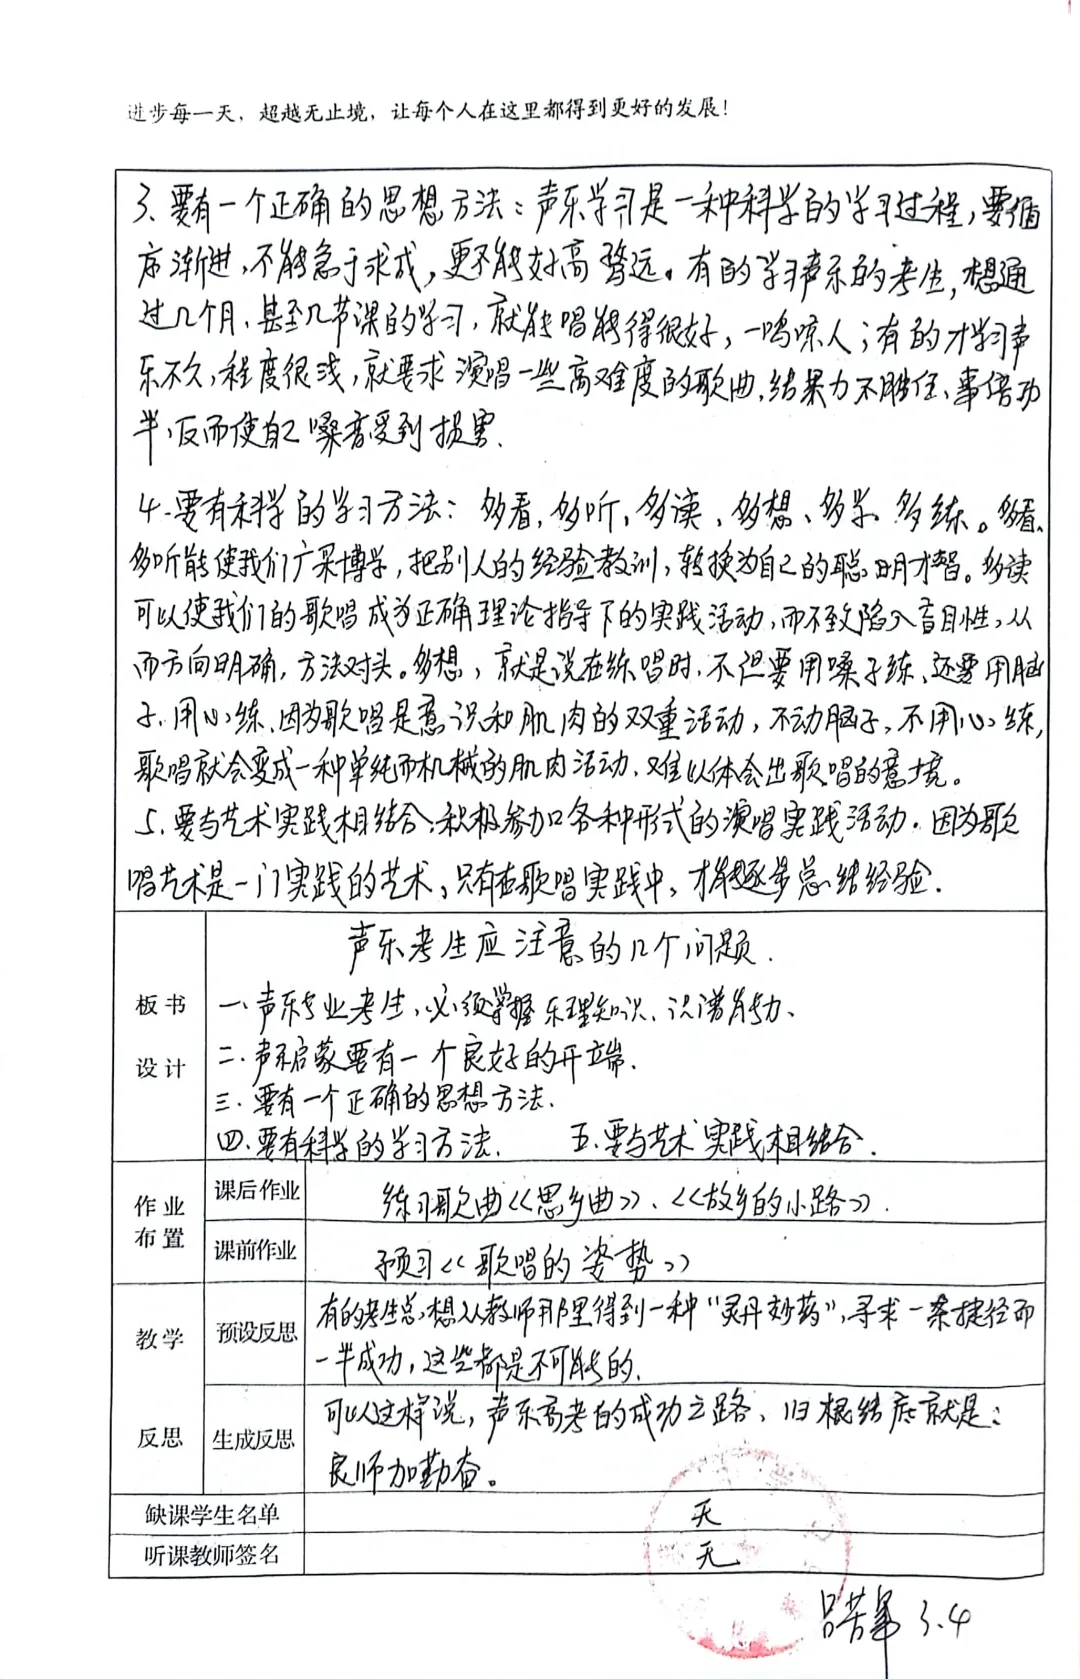 进步每一天，超越无止境，让每个人在这里都得到更好的发展！
3、要有一个正确的思想方法：声乐学习是一种科学的学习过程，要循
序渐进，不能急于求成，更不能好高骛远。有的学习声乐的考生，想通
过几个月、甚至几节课的学习，就能唱得很好，一鸣惊人；有的才学习声
乐不久，程度很浅，就要求演唱一些高难度的歌曲，结果力不胜任、事倍功
半，反而使自己嗓音受到损害.
4.要有科学的学习方法：多看，多听，多读、多想、多学、多练。多看、
多听能使我们广采博学，把别人的经验教训，转换为自己的聪明才智。多读
可以使我们的歌唱成为正确理论指导下的实践活动，而不致陷入盲目性，从
而方向明确，方法对头。多想，就是说在练唱时，不但要用嗓子练、还要用脑
子.用心练、因为歌唱是意识和肌肉的双重活动，不动脑子，不用心练，
歌唱就会变成一种单纯而机械的肌肉活动、难以体会出歌唱的意境。
5、要与艺术实践相结合，积极参加各种形式的演唱实践活动.因为歌
唱艺术是一门实践的艺术，只有在歌唱实践中，才能逐步总结经验.
板书
设计
声乐考生应注意的几个问题.
一、声乐专业考生，必须掌握乐理知识、识谱能力、
二.声乐启蒙要有一个良好的开端.
三.要有一个正确的思想方法.
四.要有科学的学习方法. 五.要与艺术实践相结合.
作业
布置
课后作业
练习歌曲《思乡曲》、《故乡的小路》.
课前作业
预习《歌唱的姿势》
教学
反思
预设反思
有的考生总想从教师那里得到一种“灵丹妙药”，寻求一条捷径而
一半成功，这些都是不可能的.
生成反思
可以这样说，声乐高考的成功之路、归根结底就是：
良师加勤奋。
缺课学生名单
无
听课教师签名
无
3.4